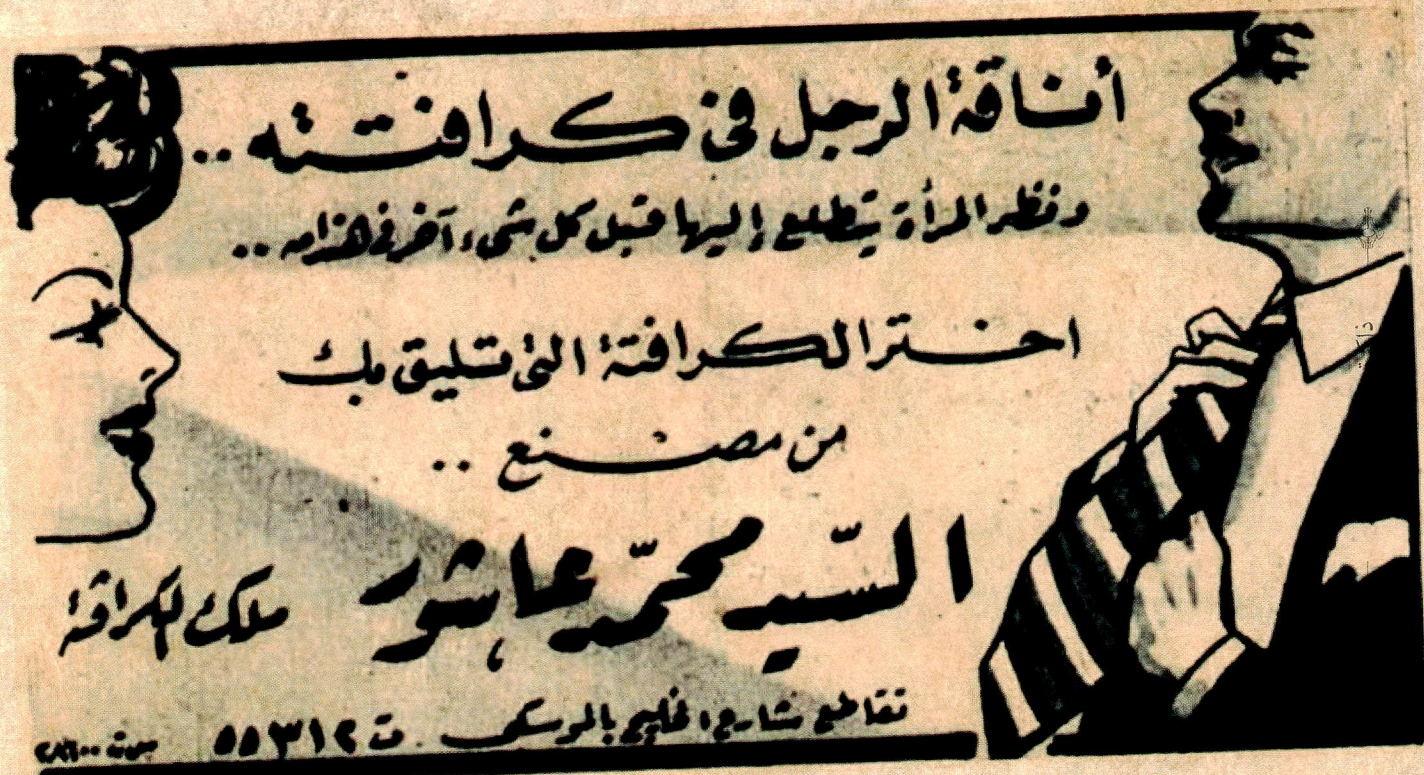 أناقة الرجل فى كرافتته ..
ونظر المرأة يتطلع إليها قبل كل شىء آخر فى هندامه ..
اختر الكرافتة التى تليق بك
من مصنع ..
السيد محمد عاشور
ملك الكرافتة
تقاطع شارع الخليج بالموسكى ت ٥٥٣١٢